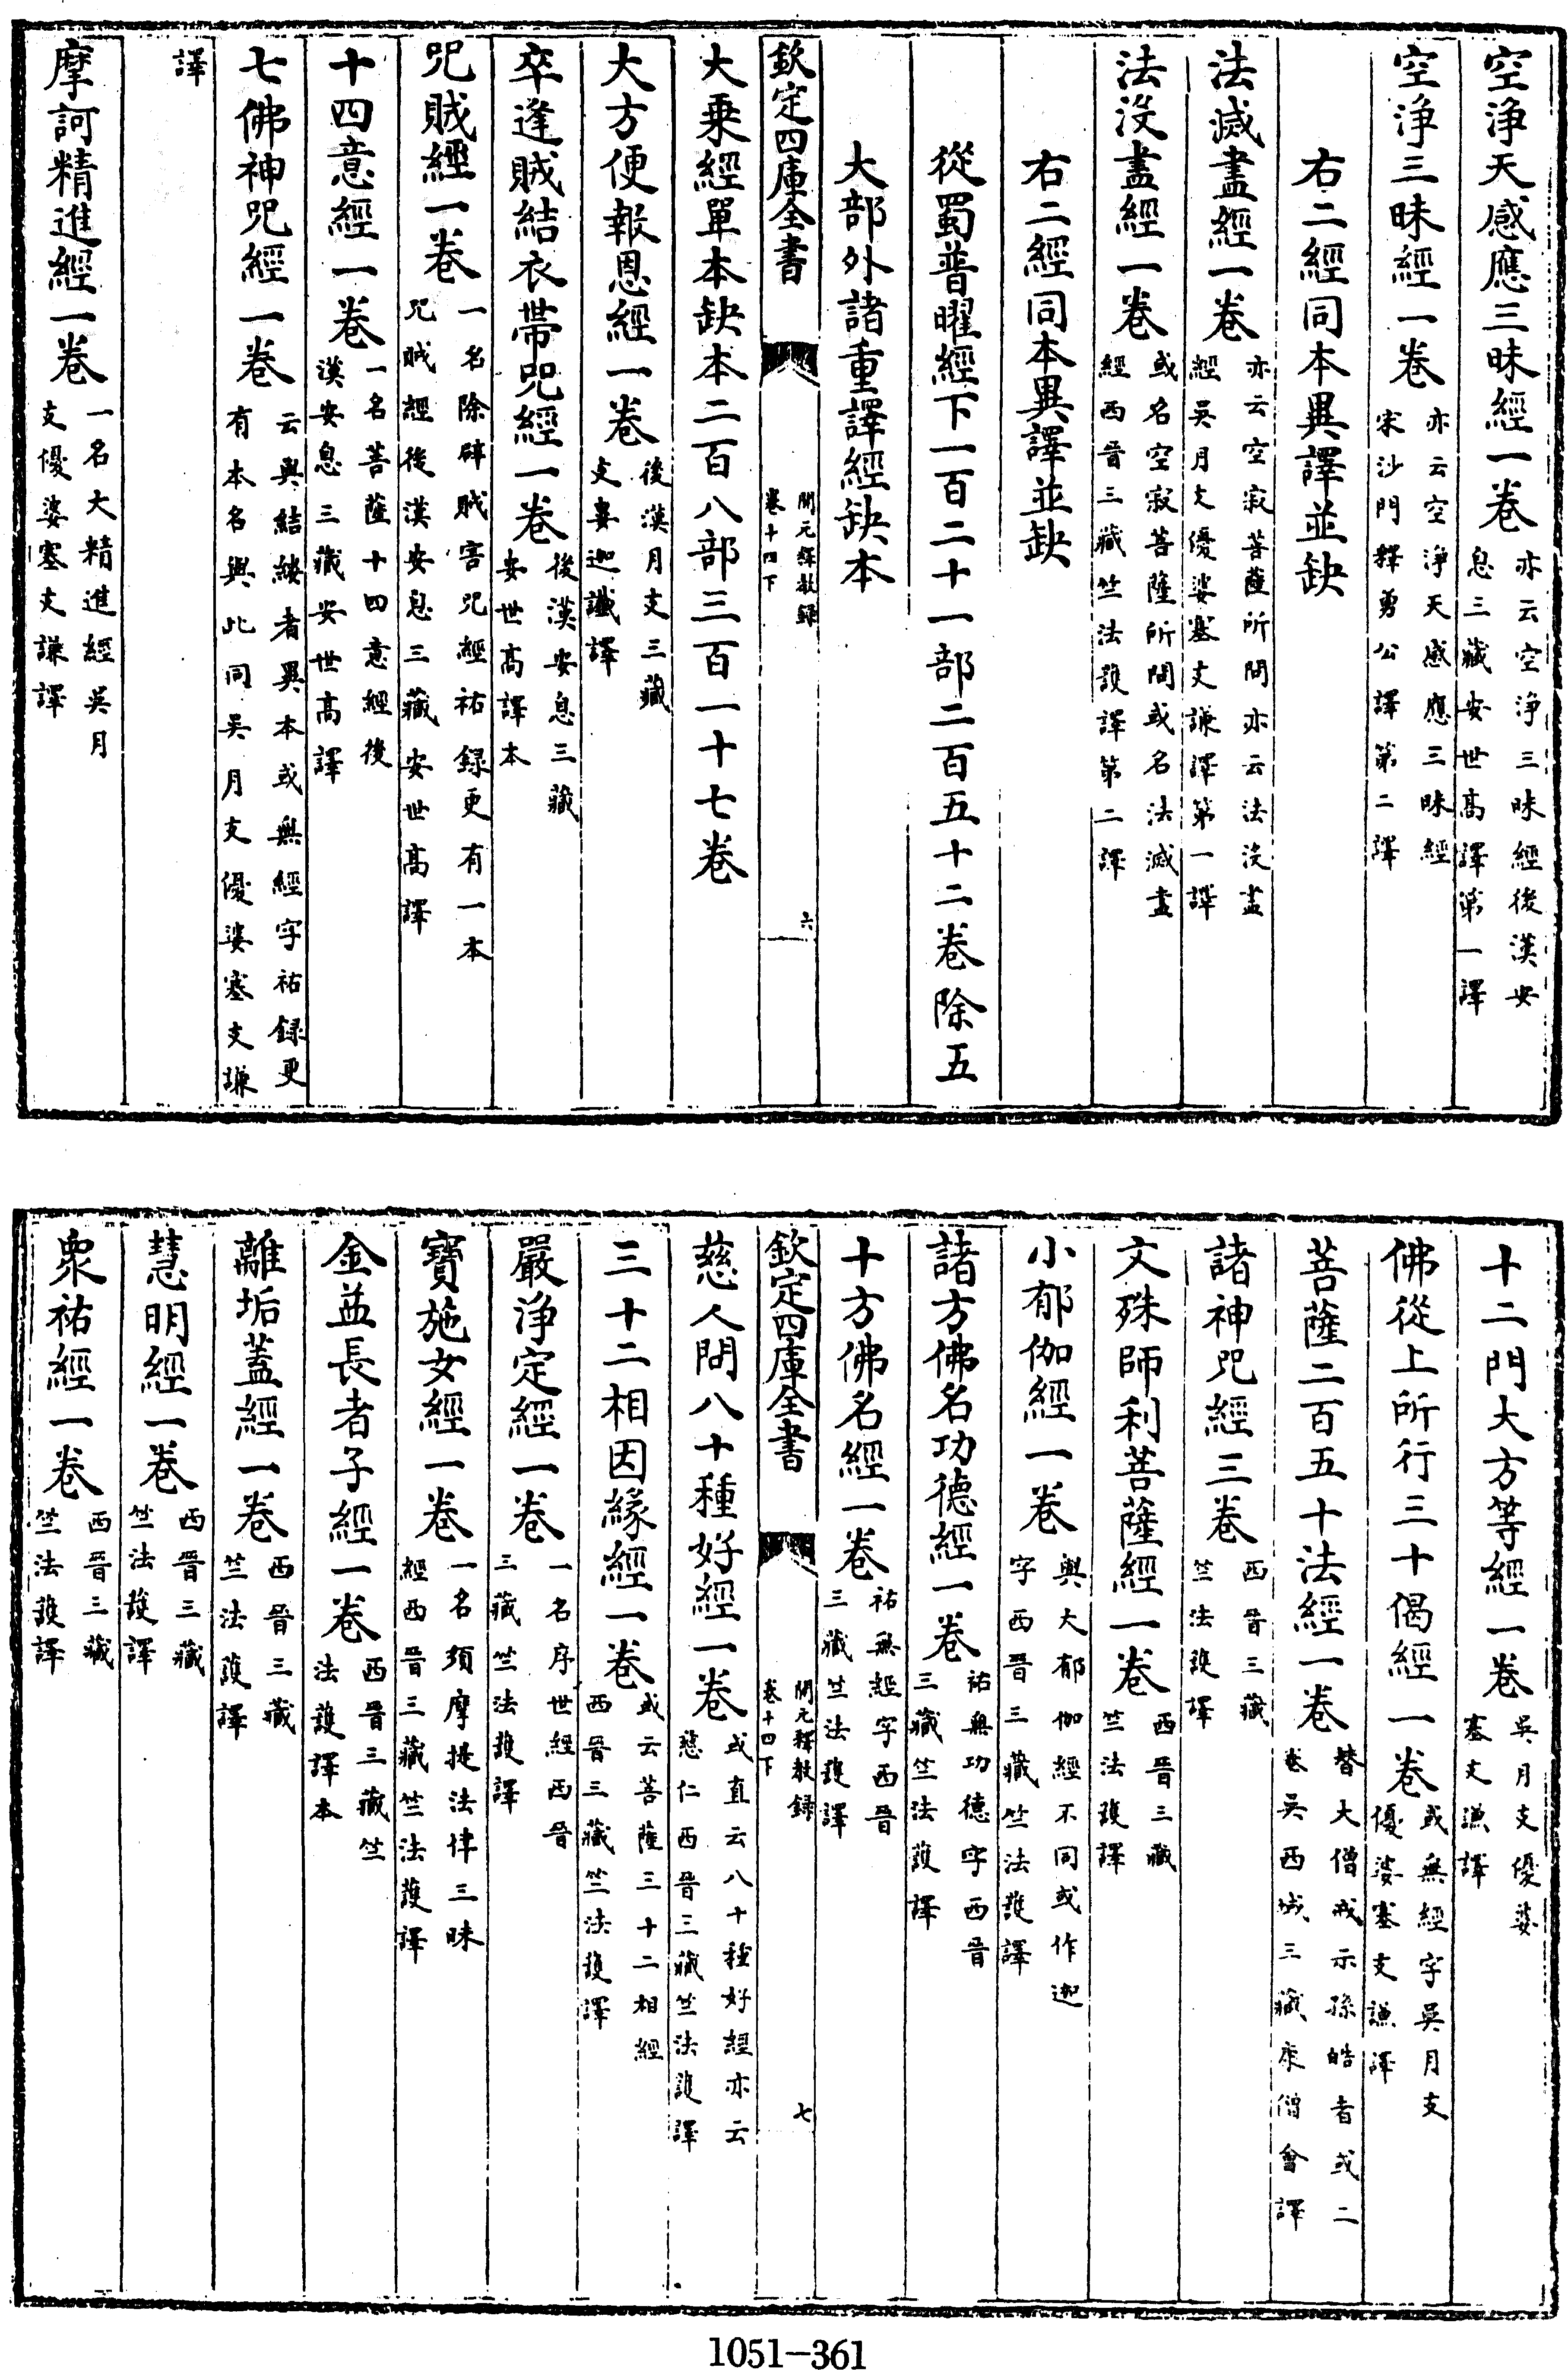 空淨天感應三昧經一卷亦云空淨三昧經後漢安息三藏安世高譯第一譯
空淨三昧經一卷亦云空淨天感應三昧經宋沙門釋勇公譯第二譯
右二經同本異譯並缺
法滅盡經一卷亦云空寂菩薩所問亦云法沒盡經吳月支優婆塞支謙譯第一譯
法沒盡經一卷或名空寂菩薩所問或名法滅盡經西晉三藏竺法護譯第二譯
右二經同本異譯並缺
從蜀普曜經下一百二十一部二百五十二卷除五
大部外諸重譯經缺本
欽定四庫全書 開元釋教録卷十四下 六
大乘經單本缺本二百八部三百一十七卷
大方便報恩經一卷後漢月支三藏支婁迦讖譯
卒逢賊結衣帶咒經一卷後漢安息三藏安世高譯本
咒賊經一卷一名除辟賊害咒經祐録更有一本咒賊經後漢安息三藏安世高譯
十四意經一卷一名菩薩十四意經後漢安息三藏安世高譯
七佛神咒經一卷云與結縷者異本或無經字祐録更有本名與此同吳月支優婆塞支謙
譯
摩訶精進經一卷一名大精進經吳月支優婆塞支謙譯
十二門大方等經一卷吳月支優婆塞支謙譯
佛從上所行三十偈經一卷或無經字吳月支優婆塞支謙譯
菩薩二百五十法經一卷替大僧戒示孫皓者或二卷吳西域三藏康僧會譯
諸神咒經三卷西晉三藏竺法護譯
文殊師利菩薩經一卷西晉三藏竺法護譯
小郁伽經一卷與大郁伽經不同或作迦字西晉三藏竺法護譯
諸方佛名功德經一卷祐無功德字西晉三藏竺法護譯
十方佛名經一卷祐無經字西晉三藏竺法護譯
欽定四庫全書 開元釋教録卷十四下 七
慈人問八十種好經一卷或直云八十種好經亦云慈仁西晉三藏竺法護譯
三十二相因緣經一卷或云菩薩三十二相經西晉三藏竺法護譯
嚴淨定經一卷一名序世經西晉三藏竺法護譯
寶施女經一卷一名須摩提法律三昧經西晉三藏竺法護譯
金益長者子經一卷西晉三藏竺法護譯本
離垢蓋經一卷西晉三藏竺法護譯
慧明經一卷西晉三藏竺法護譯
衆祐經一卷西晉三藏竺法護譯
1051-361